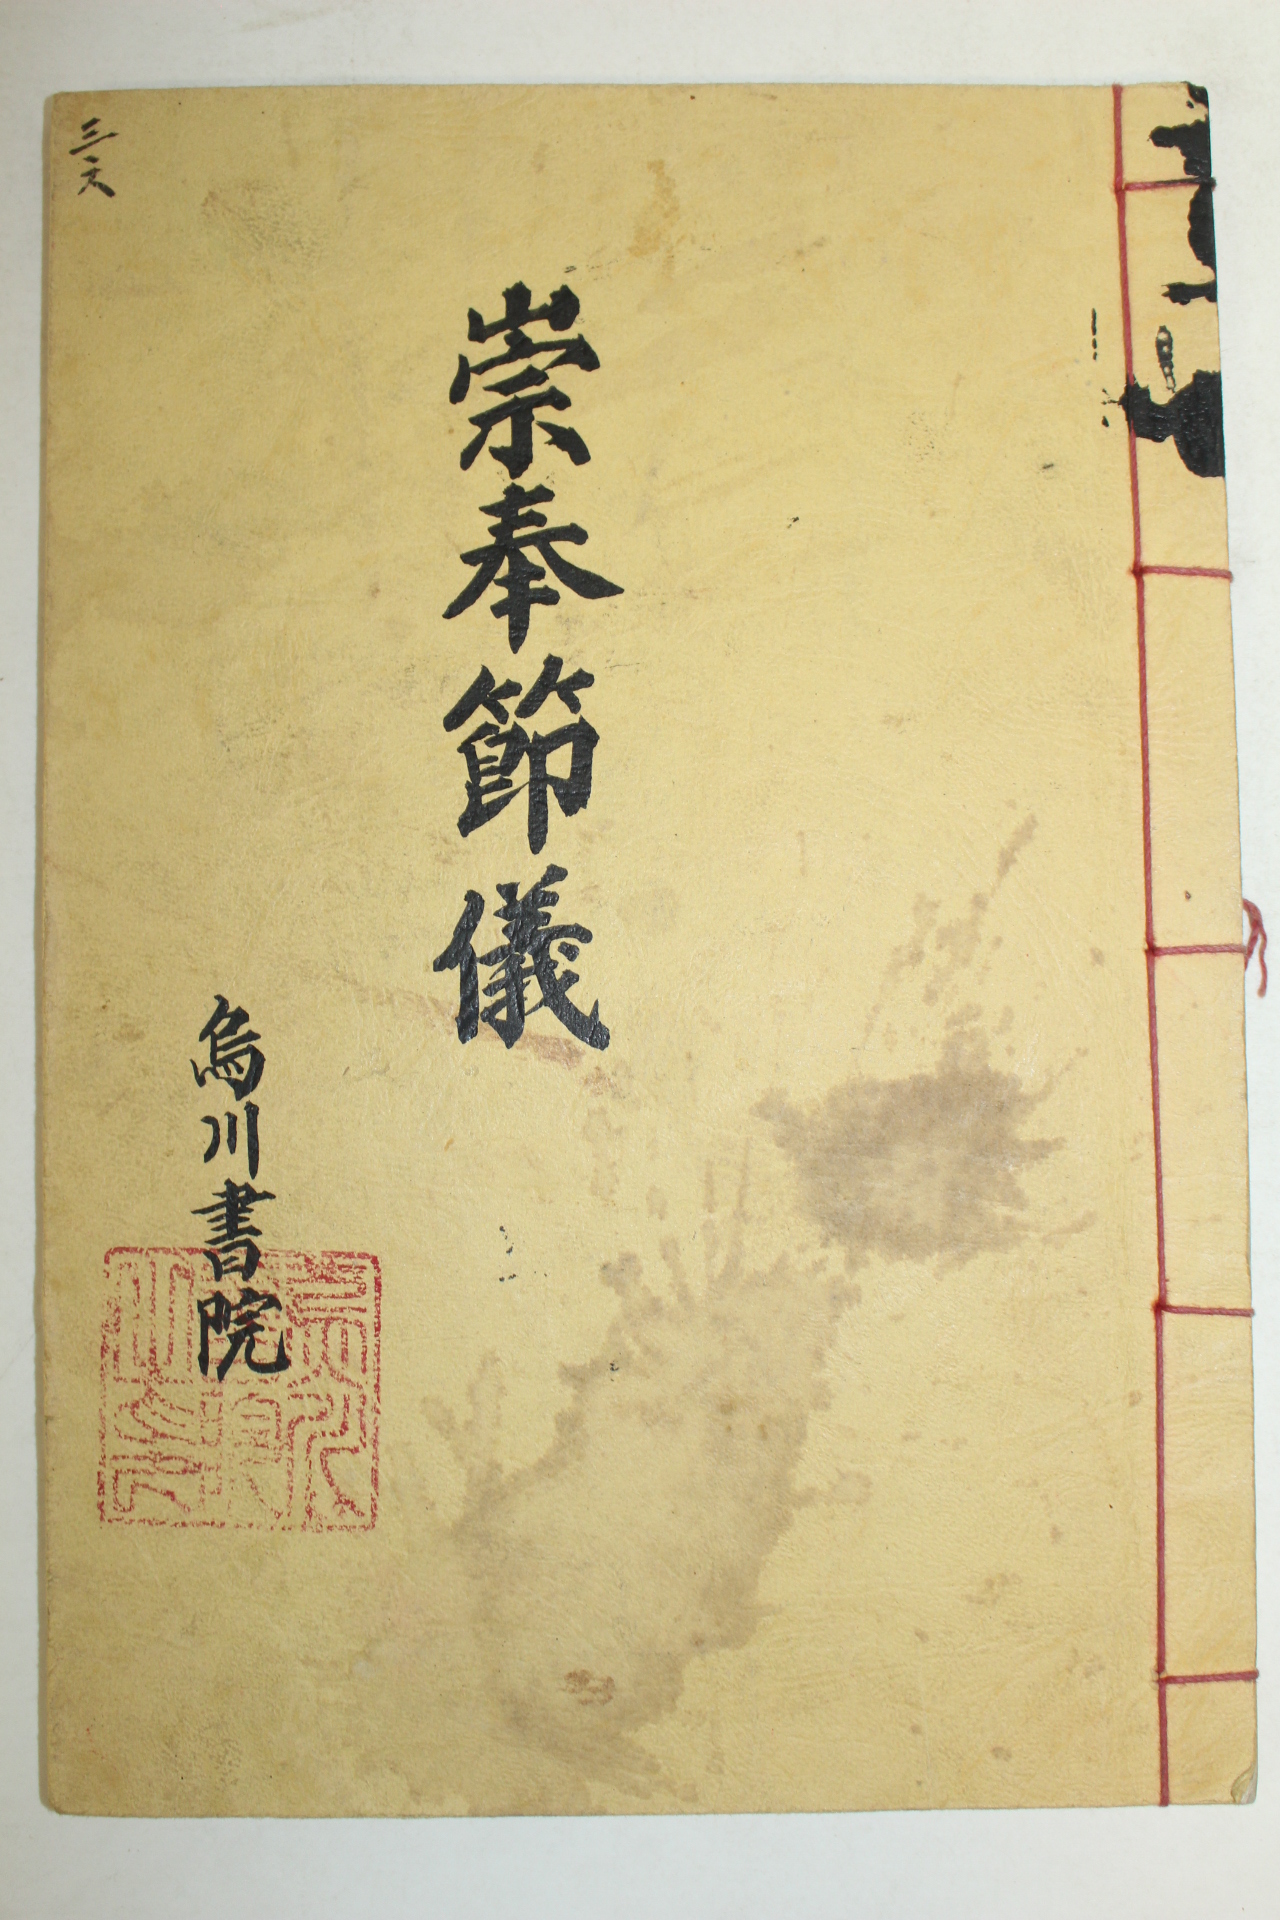 崇奉節儀
烏川書院